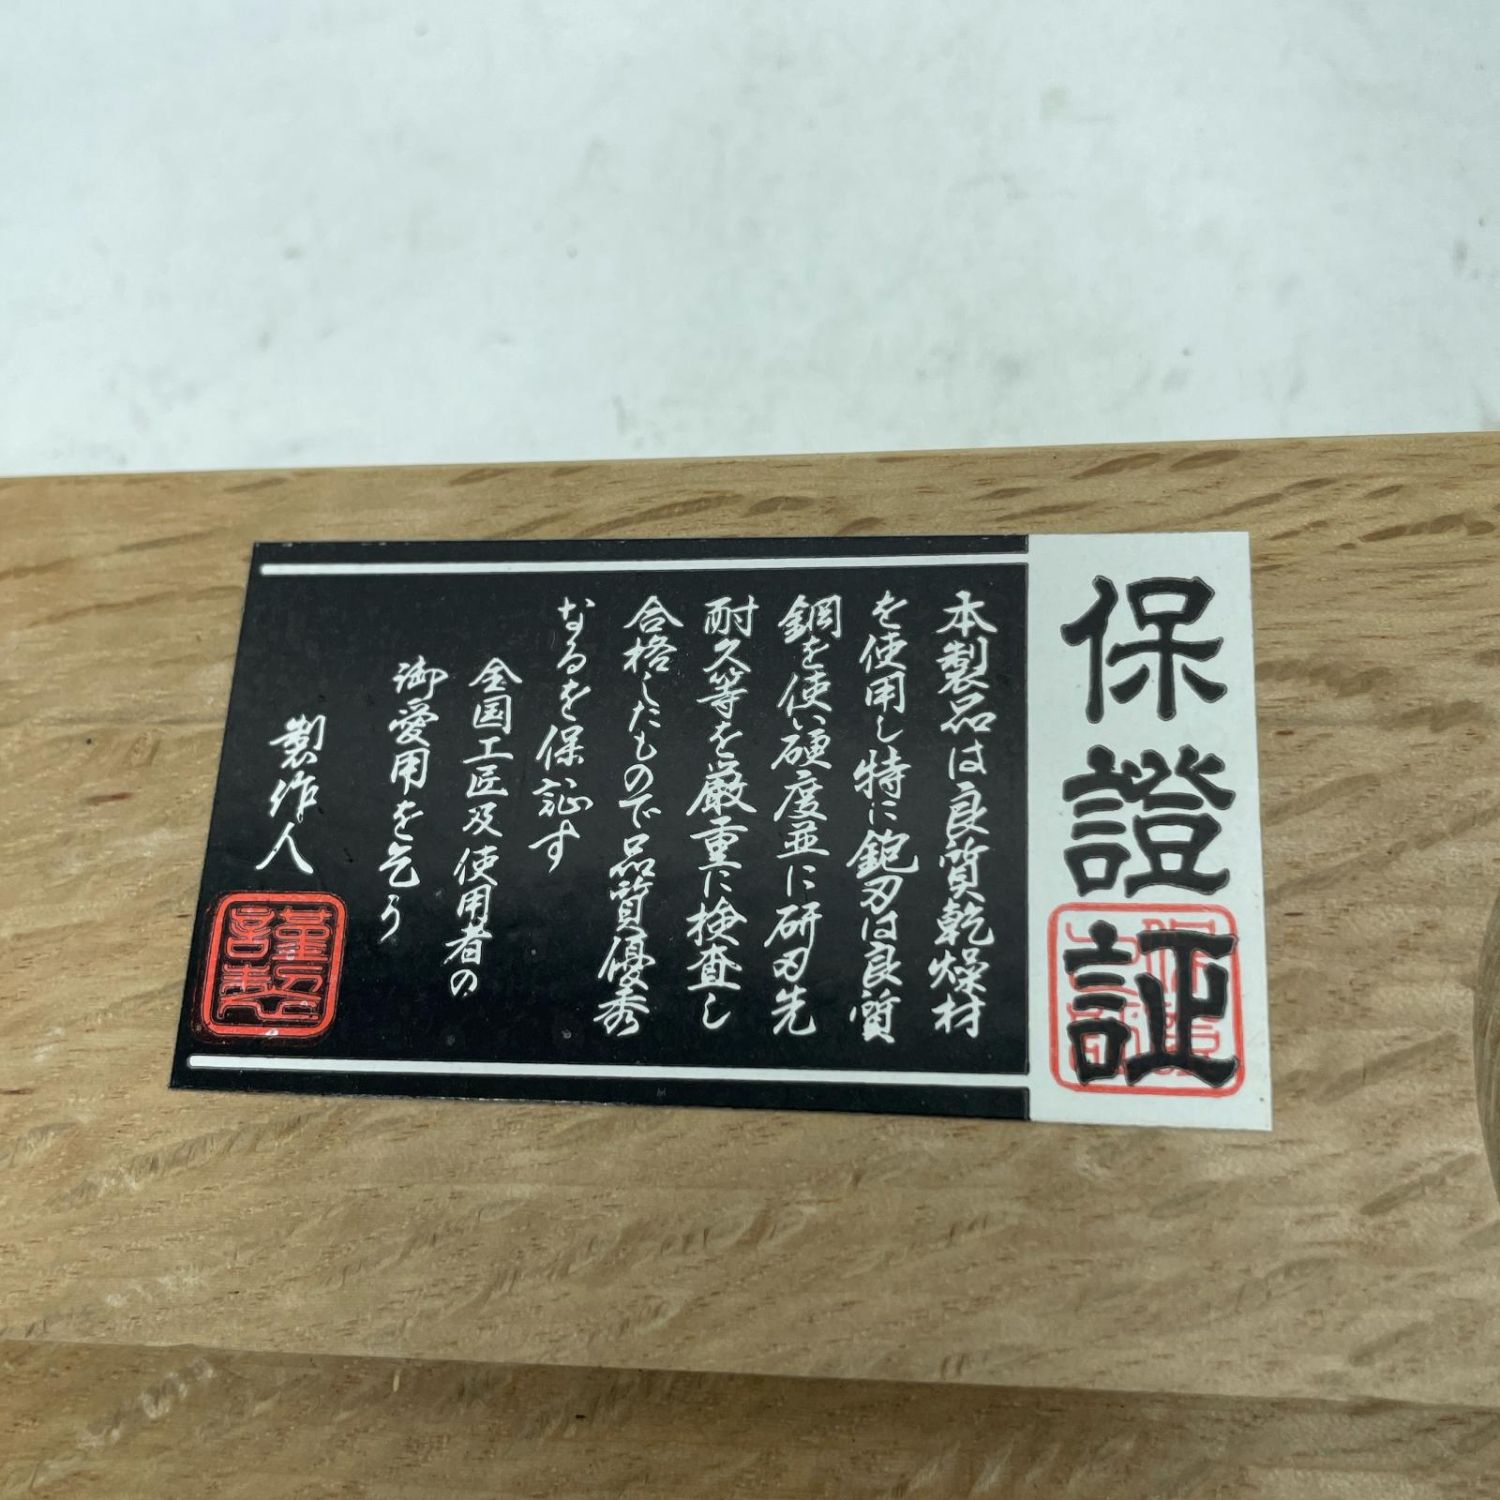 保證証
本製品は良質乾燥材
を使用し特に鉋刃は良質
鋼を使い硬度並に研刃先
耐久等を厳重に検査し
合格したもので品質優秀
なるを保証す
全国工匠及使用者の
御愛用を乞う
製作人
謹製